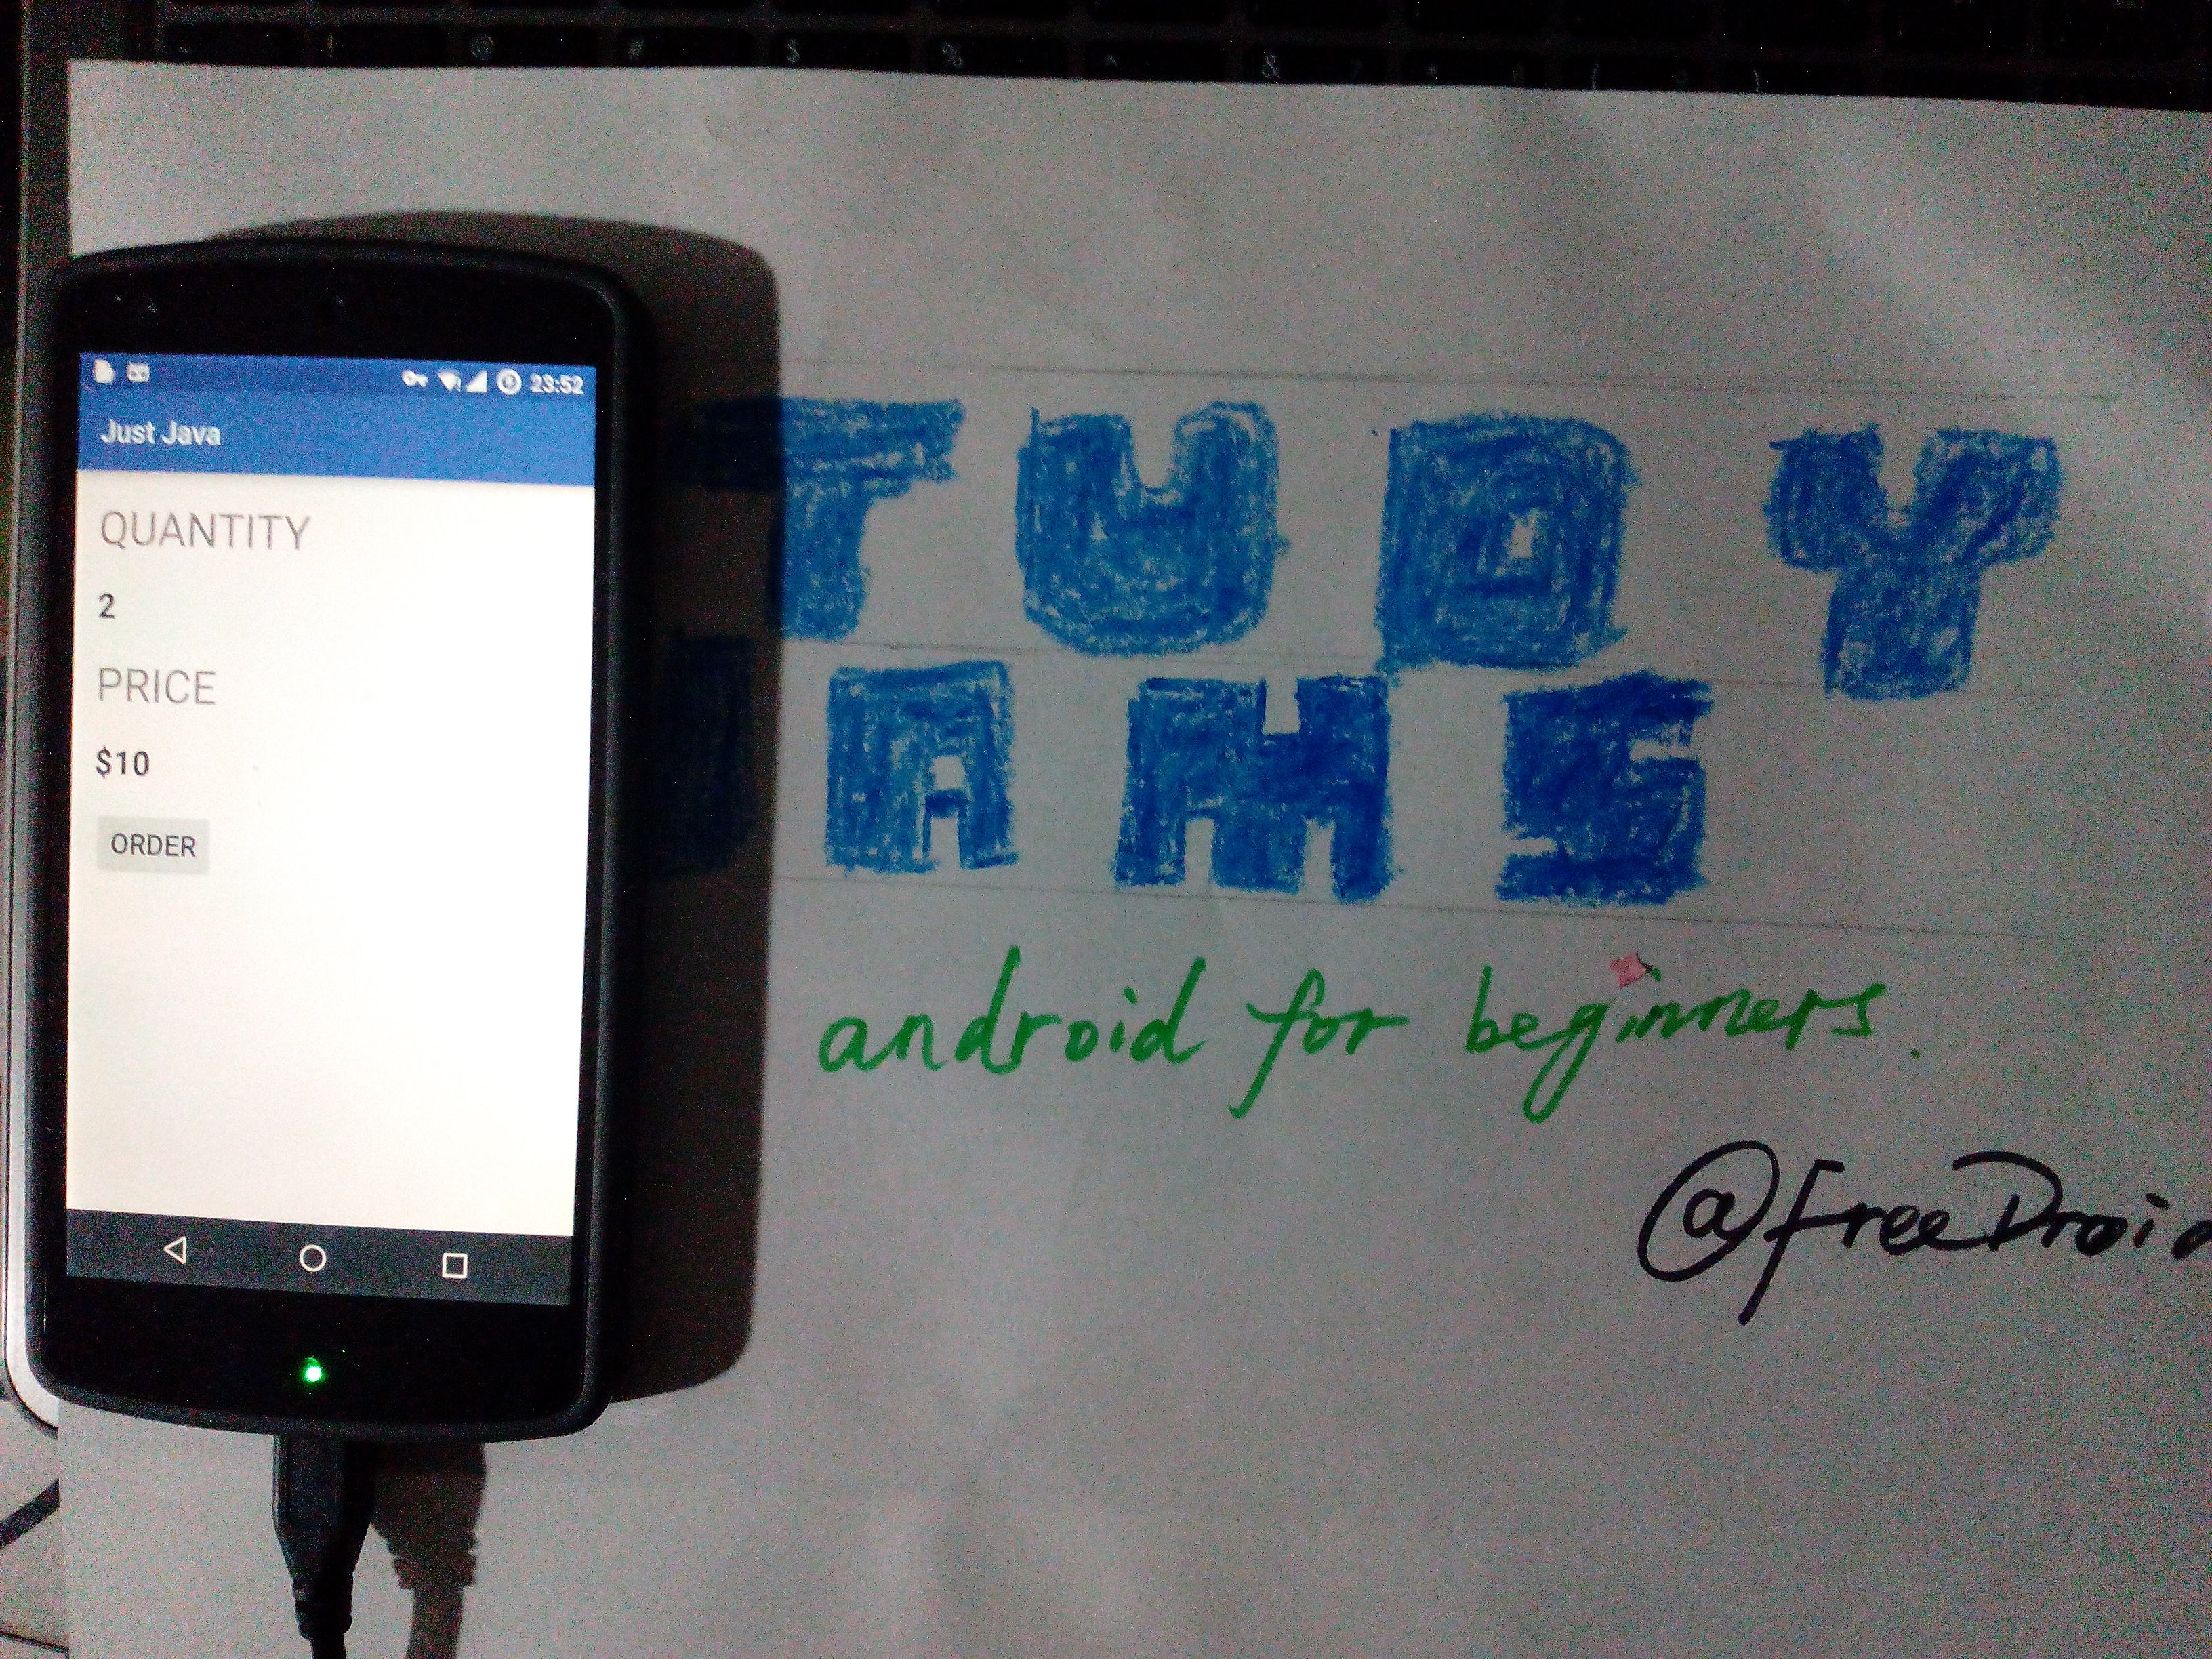 @ # $ % ^ & * ( )
23:52
Just Java
QUANTITY
2
PRICE
$10
ORDER
TUDY
AMS
android for beginners.
@freeDroid